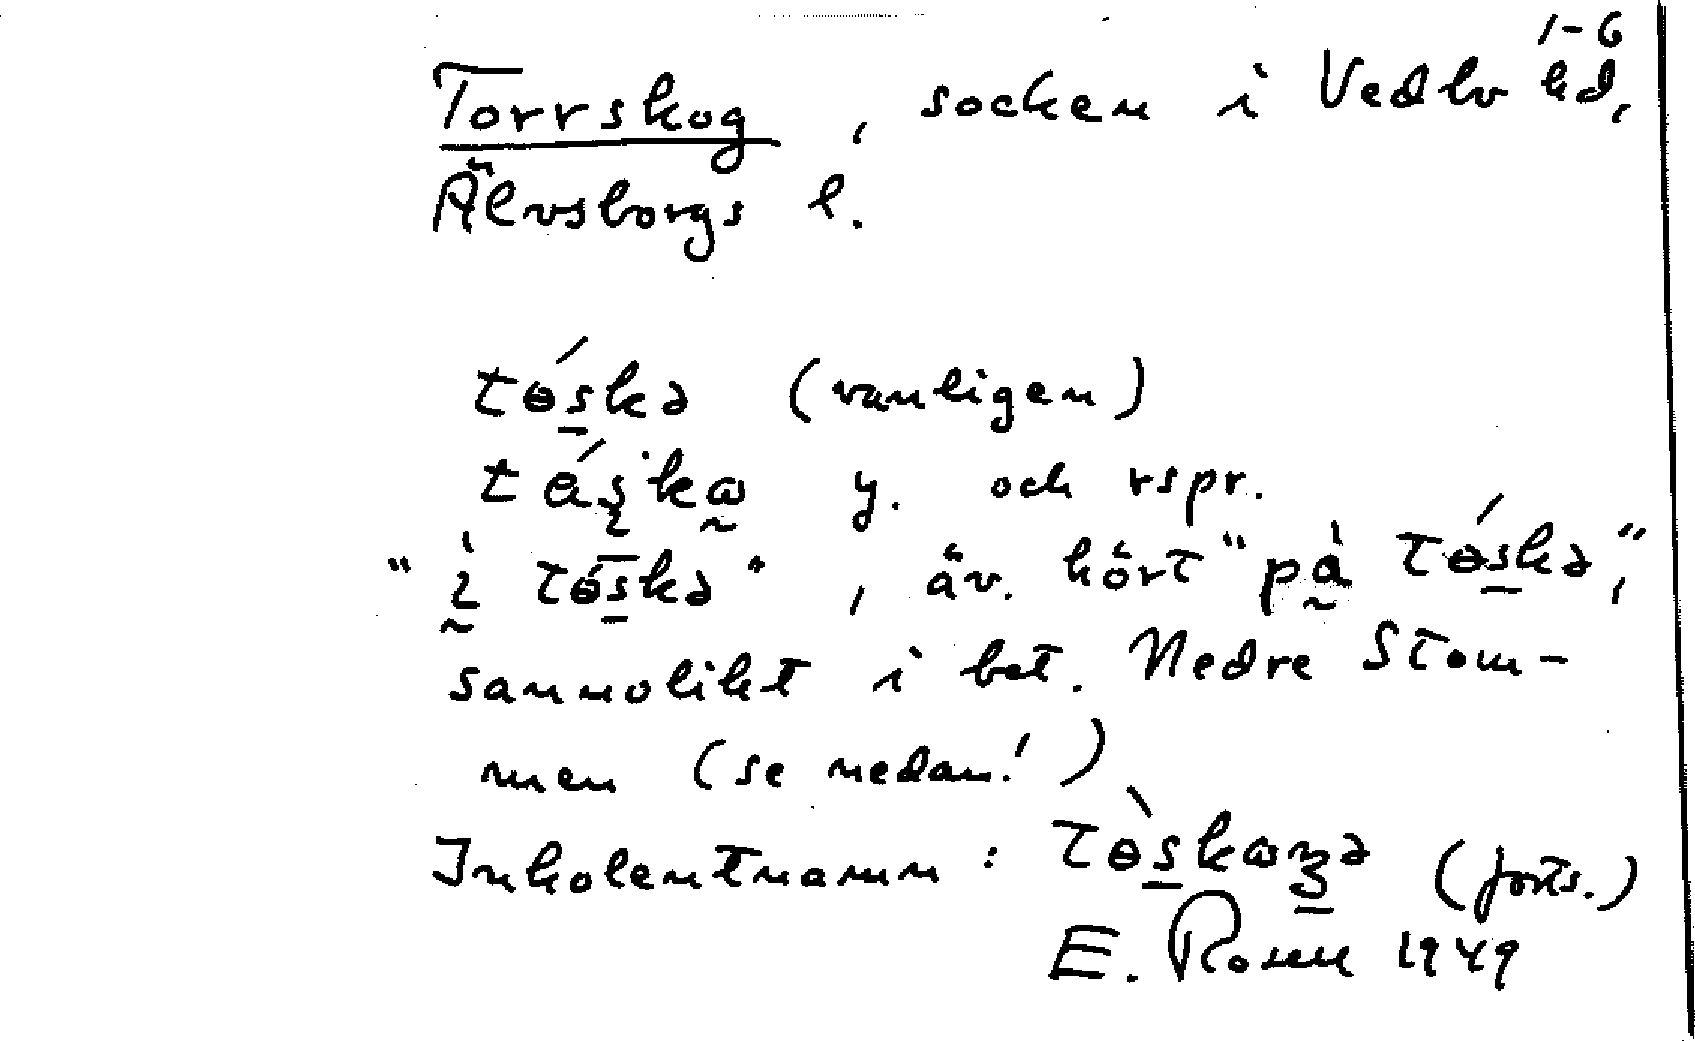 1-6
Torrskog, socken i Vedbo hd,
Älvsborgs l.
tɵ́s̲kə (vanligen)
y. och rspr.
tɵ́s̲kə", äv. hört "på tɵ́s̲kə",
sannolikt i bet. Nedre Stom-
men (se nedan!)
Inbolentnamn: (forts.)
E. Rosen 1949